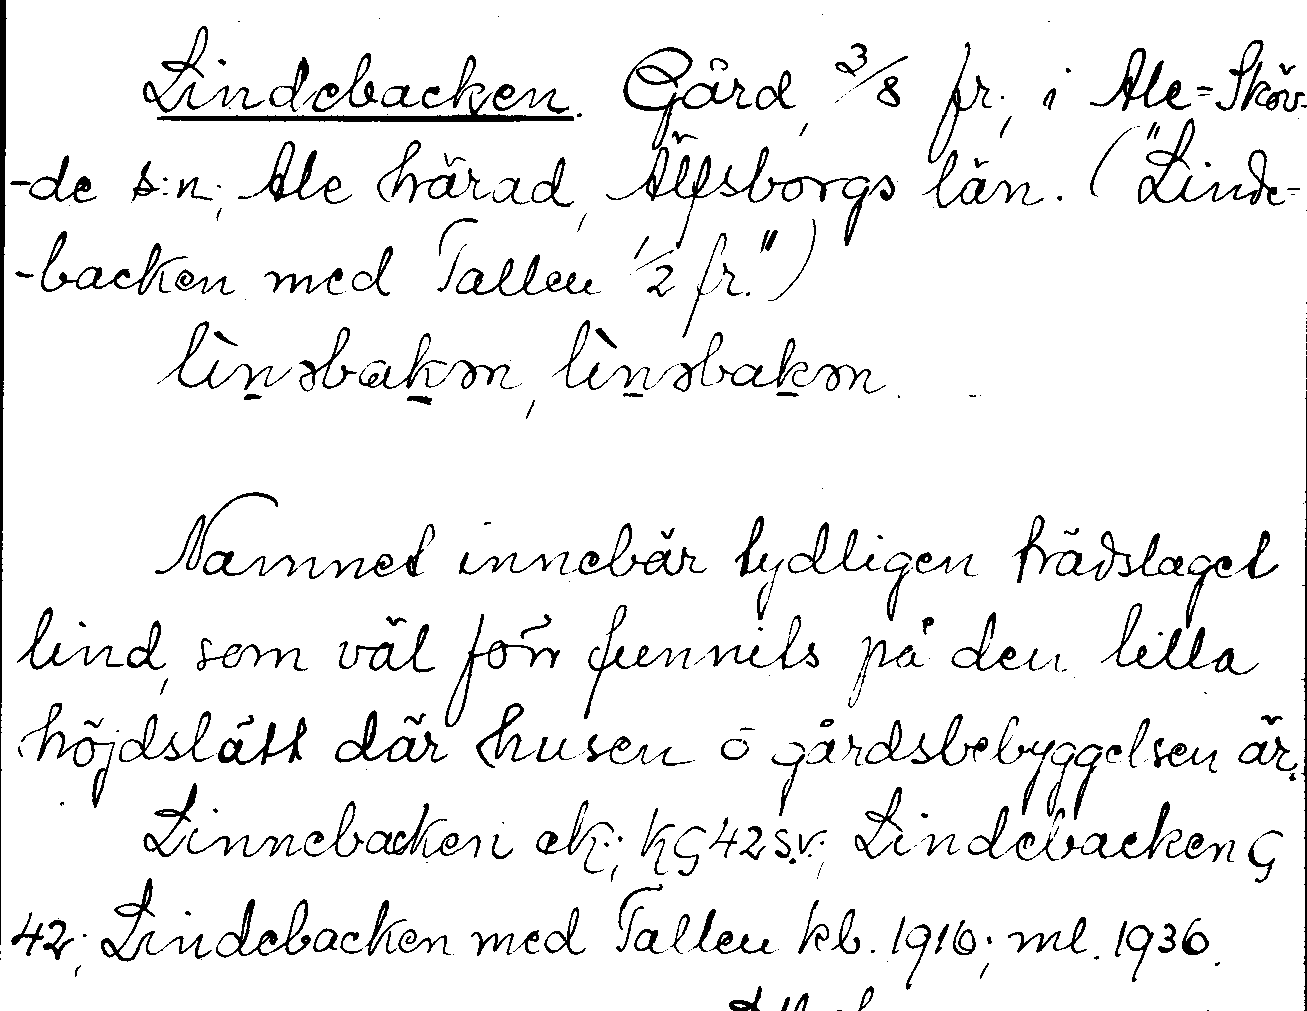 Lindebacken. Gård, 3/8 fr., i Ale=Sköv-
-de s:n, Ale härad, Älfsborgs län. ("Linde-
-backen med Tallen 1/2 fr.")
lìnəbakən, lìnəbakən.
Namnet innebär tydligen trädslaget
lind, som väl förr funnits på den lilla
höjdslätt där husen o gårdsbebyggelsen är.
Linnebacken ek.; KG 42 s.v.; Lindebacken G
42; Lindebacken med Tallen kb. 1916; ml. 1936.